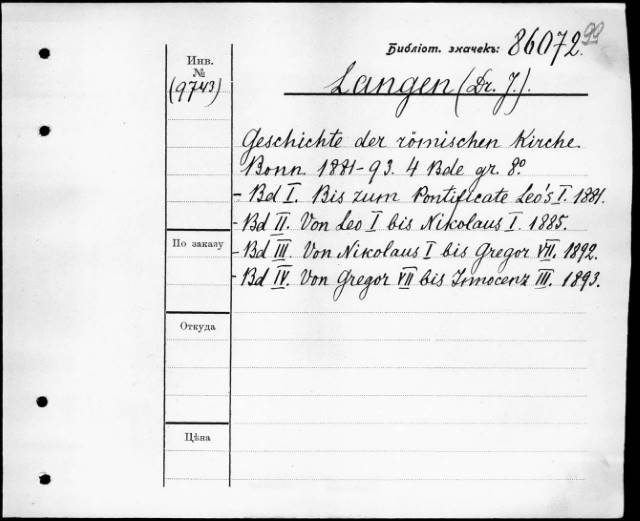 Библіот. значекъ: 86072 99
Инв.
№
(9743)
Langen (Dr. J.).
Geschichte der römischen Kirche.
Bonn. 1881-93. 4 Bde gr. 8º
- Bd I. Bis zum Pontificate Leo's I. 1881.
- Bd II. Von Leo I bis Nikolaus I. 1885.
По заказу
- Bd III. Von Nikolaus I bis Gregor VII. 1892.
- Bd IV. Von Gregor VII bis Innocenz III. 1893.
Откуда
Цѣна